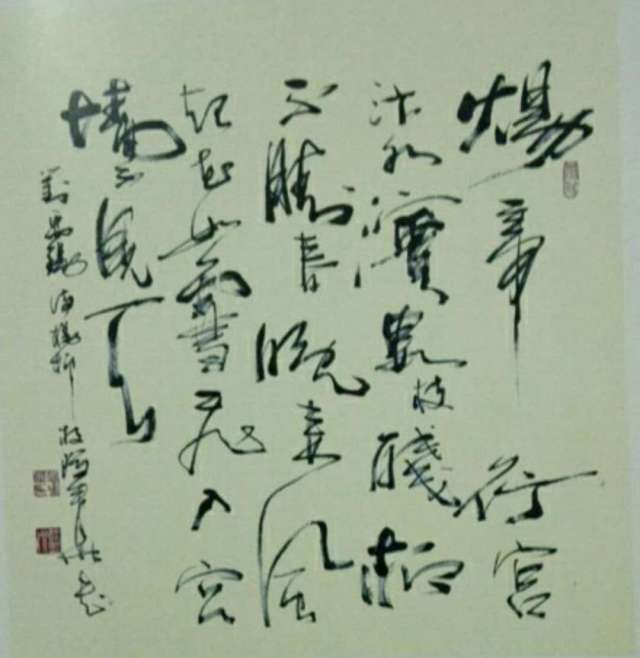 煬帝行宮
汴水濱數枝殘柳
不勝春晚來風
起花如雪飛入宮
墻不見人
劉禹錫詩楊柳枝